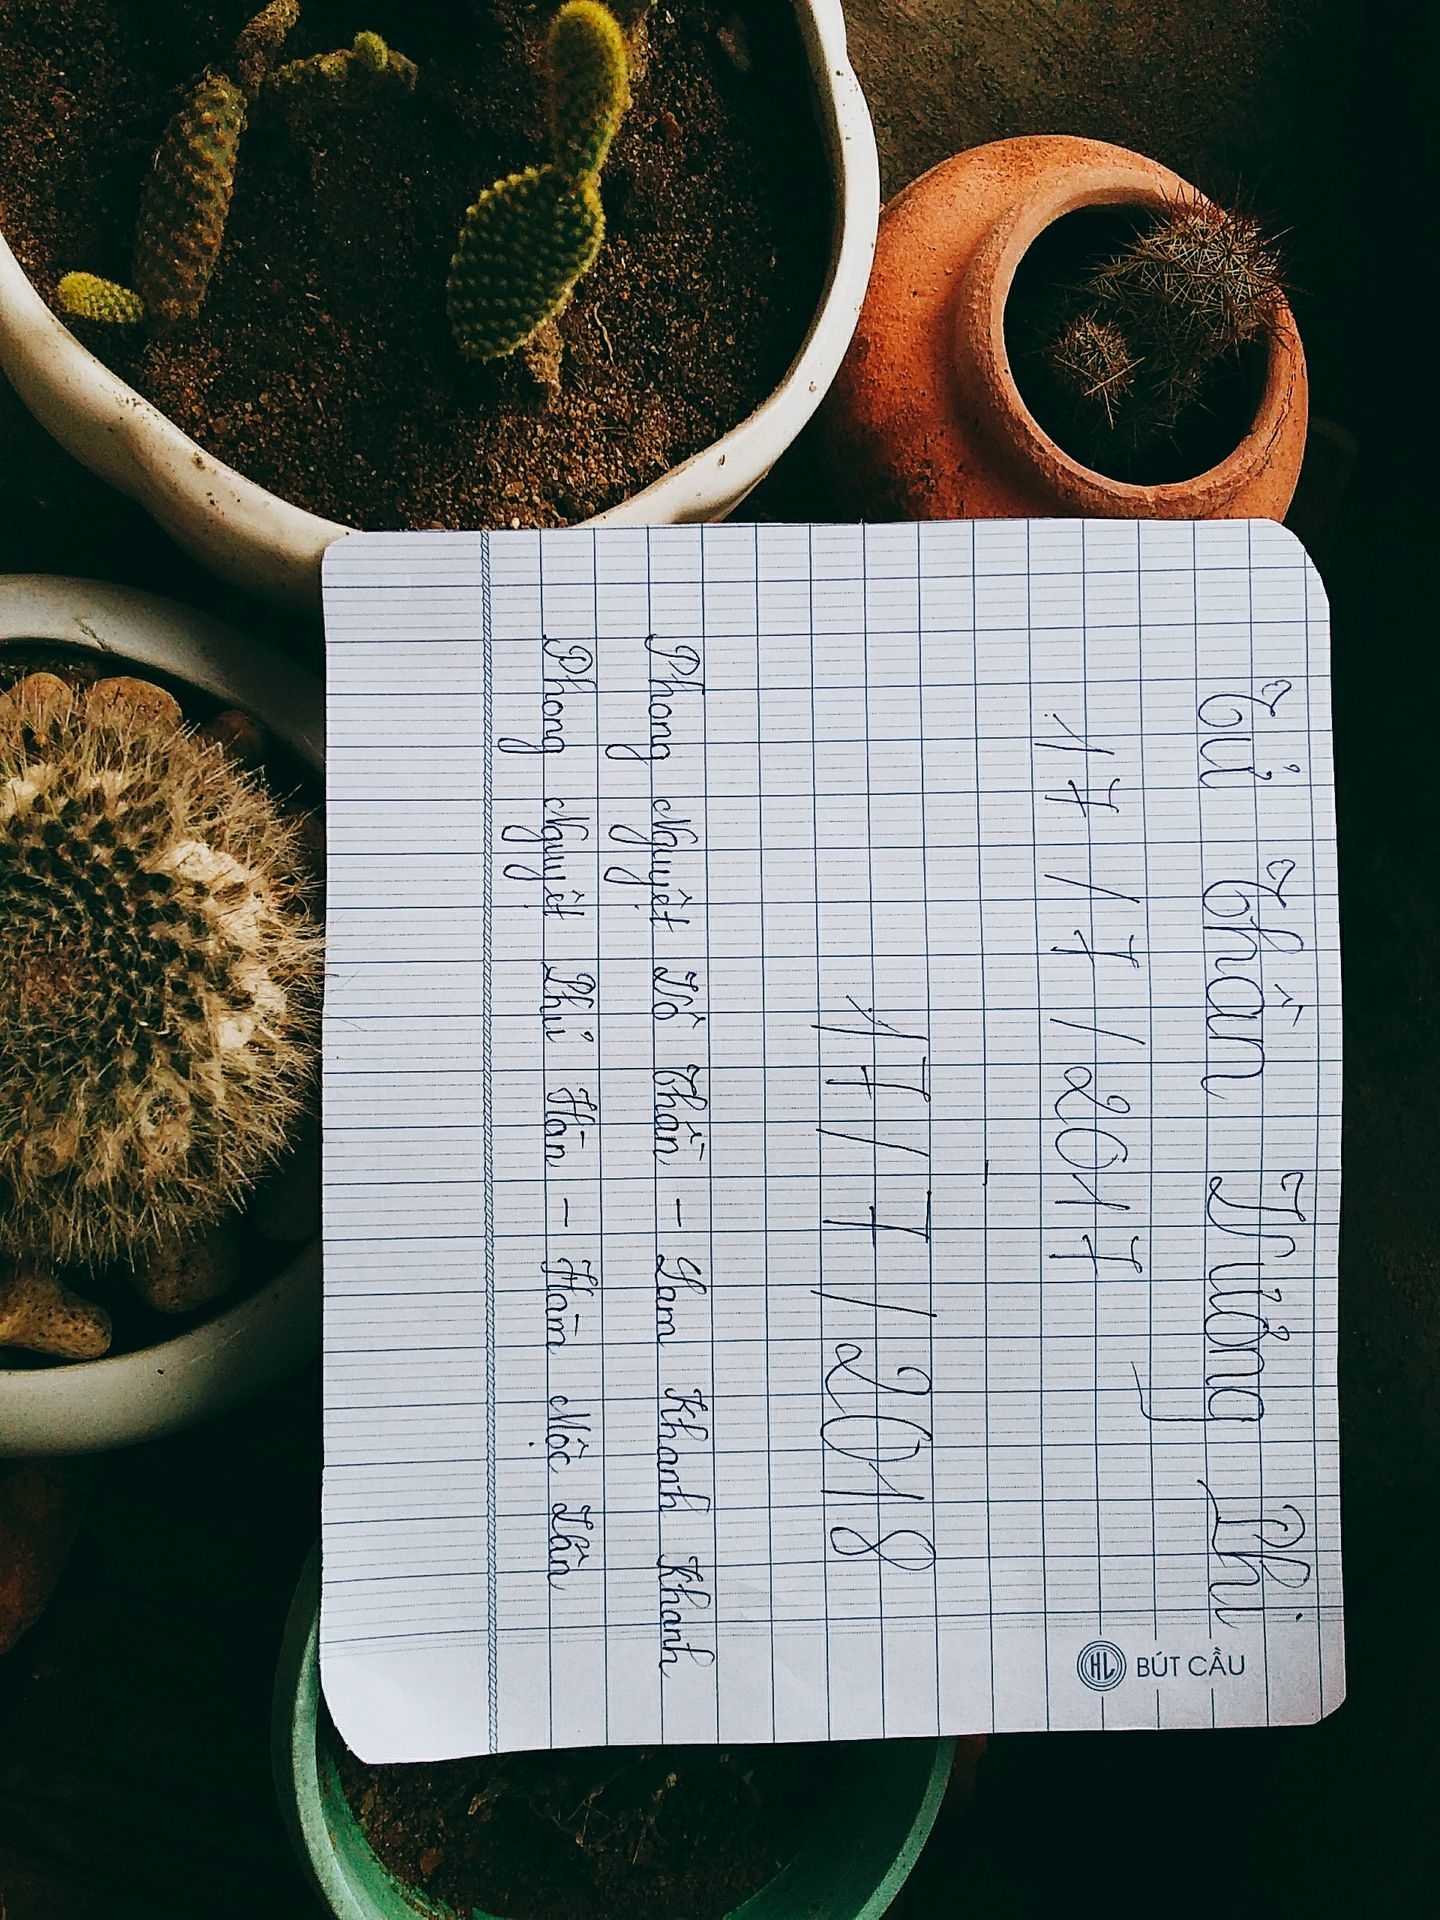 Tử Thần Trưởng Phi
17/7/2017
-
17/7/2018
Phong Nguyệt Tố Thần - Lam Khanh Khanh
Phong Nguyệt Phủ Hàn - Hàm Mộc Lân
HL BÚT CẦU